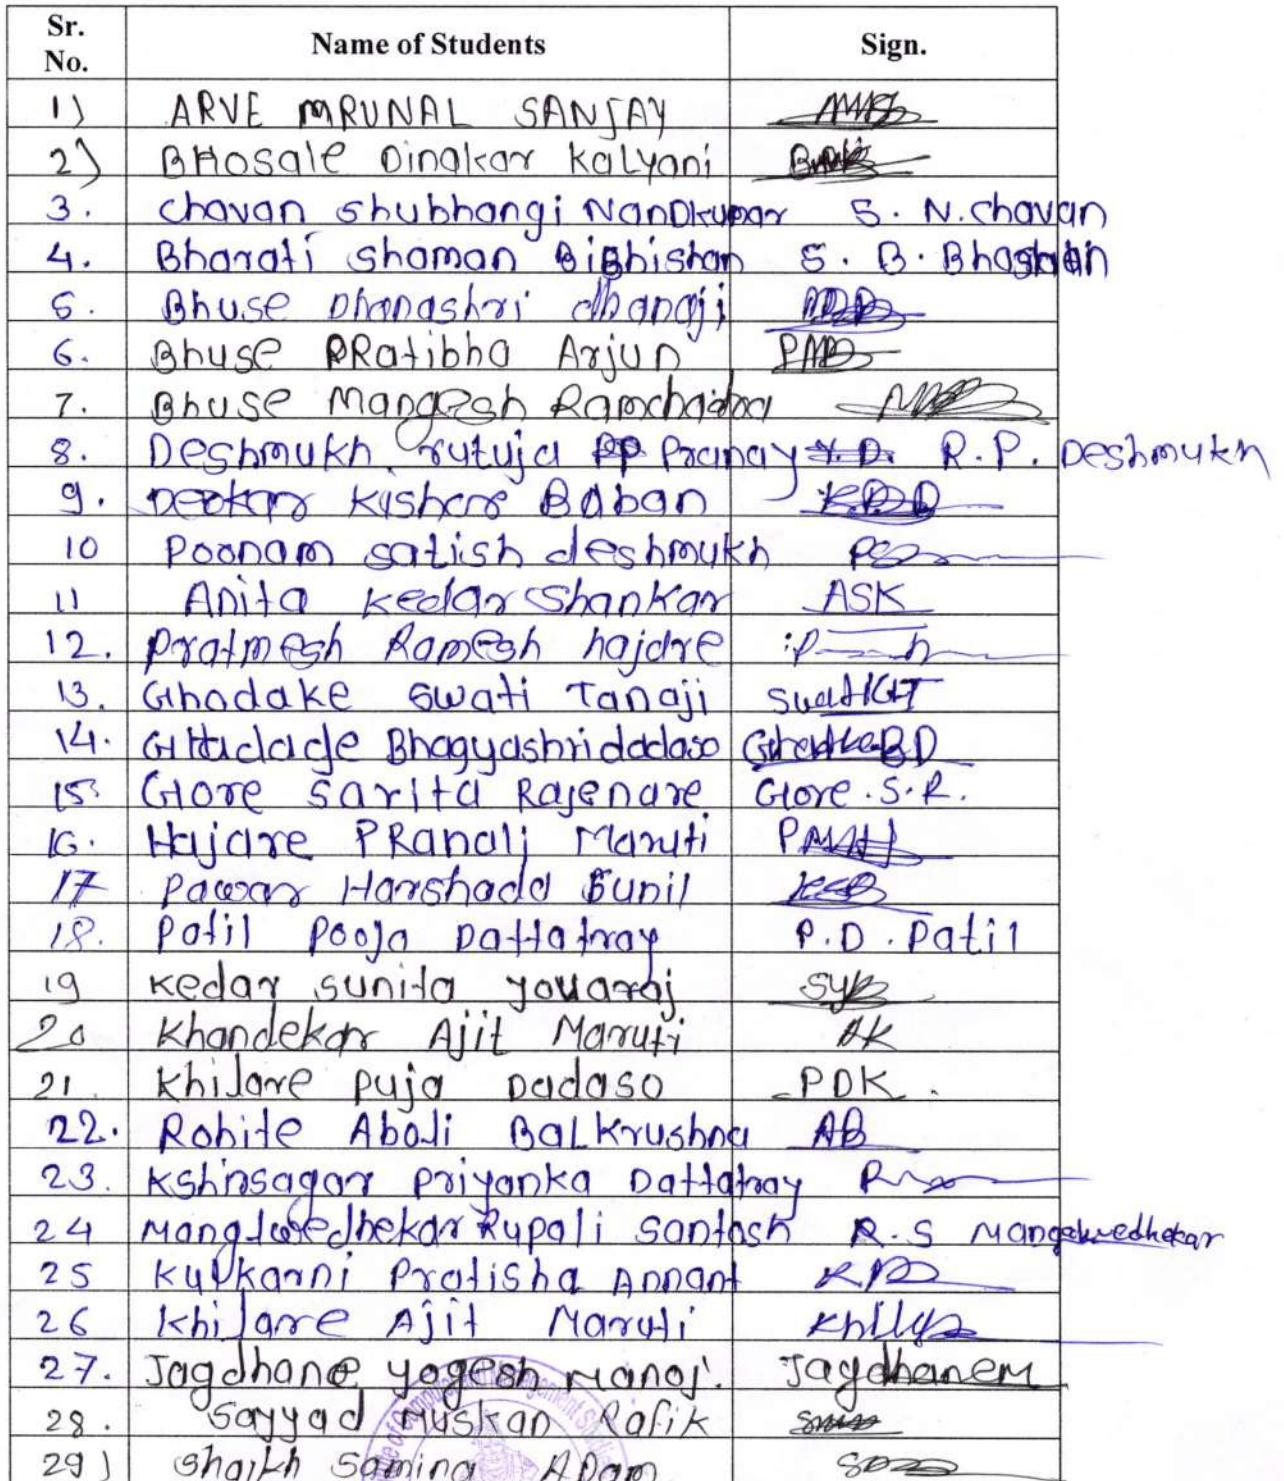 Sr. No. Name of Students Sign.
1) ARVE MRUNAL SANJAY
2) BHosale Dinakar Kalyani
3. Chavan Shubhangi NanDkumar S. N. Chavan
4. Bharati Shaman Bibhishan S. B.
5. Bhuse Dhanashri dhanaji
6. Bhuse PRatibha Arjun PAB
7. Bhuse Mangesh
8. Deshmukh rutuja Pranay R. P. Deshmukh
9. Deokar Kishore Baban K.B.D
10 Poonam satish deshmukh
11 Anita Kedar Shankar ASK
12. Pratmesh Ramesh hajare
13. Ghadake Swati Tanaji
14. Bhagyashri dadaso
15. Gore Sarita Rajenare Gore.S.R.
16. Hajare PRanali Maruti
17 Pawar Harshada Sunil
18. Patil Pooja Dattatray P.D. Patil
19 Kedar sunita youaraj
20 Khandekar Ajit Maruti AK
21 Khilare puja Dadaso PDK.
22. Rohite Aboli BaLKrushna AB
23. Kshirsagar Priyanka Dattatray
24 Mangalwedhekar Rupali Santosh R.S Mangalwedhekar
25 Kulkarni Pratisha Annant
26 Khilare Ajit Maruti
27. Jagdhane yogesh Manoj. Jagdhanem
28. Sayyad Muskan Rafik
29) Shaikh Samina Adam